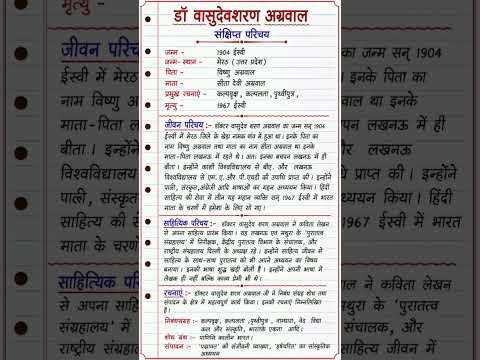 डॉ वासुदेवशरण अग्रवाल
संक्षिप्त परिचय
जन्म - 1904 ईस्वी
जन्म-स्थान - मेरठ (उत्तर प्रदेश)
पिता - विष्णु अग्रवाल
माता - सीता देवी अग्रवाल
प्रमुख रचनाएं - कल्पवृक्ष, कल्पलता, पृथ्वीपुत्र,
मृत्यु - 1967 ईस्वी
जीवन परिचय:- डॉक्टर वासुदेव शरण अग्रवाल का जन्म सन् 1904
ईस्वी में मेरठ जिले के खेड़ा नामक गांव में हुआ था। इनके पिता का
नाम विष्णु अग्रवाल तथा माता का नाम सीता अग्रवाल था इनके
माता-पिता लखनऊ में रहते थे। अतः इनका बचपन लखनऊ में ही
बीता। इन्होंने काशी विश्वविद्यालय से बीए. और लखनऊ
विश्वविद्यालय से एम. ए. और पी.एचडी की उपाधि प्राप्त की। इन्होंने
पाली, संस्कृत, अंग्रेजी आदि भाषाओं का गहन अध्ययन किया। हिंदी
साहित्य की सेवा में लीन यह महान व्यक्ति सन् 1967 ईस्वी में भारत
माता के चरणों में हमेशा के लिए सो गए।
साहित्यिक परिचय:- डॉक्टर वासुदेवशरण अग्रवाल ने कविता लेखन
से अपना साहित्य प्रारंभ किया। यह लखनऊ एवं मथुरा के 'पुरातत्व
संग्रहालय' में निरीक्षक, केंद्रीय पुरातत्व विभाग के संचालक, और
राष्ट्रीय संग्रहालय दिल्ली के अध्यक्ष रहे। इन्होंने साहित्य जीवन में
साहित्य के साथ-साथ पुरातत्व को भी अपने अध्ययन का विषय
बनाया। इनकी भाषा शुद्ध खड़ी बोली है। इन्होंने अपनी भाषा में
लेखक ही नहीं बल्कि काव्य प्रेमी भी थे।
रचनाएं:- डॉक्टर वासुदेवशरण अग्रवाल जी ने निबंध संग्रह शोध तथा
संपादन के क्षेत्र में महत्वपूर्ण कार्य किया। इनकी रचनाएं निम्नलिखित
है।
निबंधसंग्रह:- कल्पवृक्ष, कल्पलता, पृथ्वीपुत्र, वाग्धारा, वेद विद्या
कला और संस्कृति, भारतके एकता आदि।
शोध ग्रंथ:- पाणिनि कालीन भारत।
संपादन:- 'पद्मावत' की संजीवनी व्याख्या, 'हर्षचरित' का सांस्कृतिक
अध्ययन